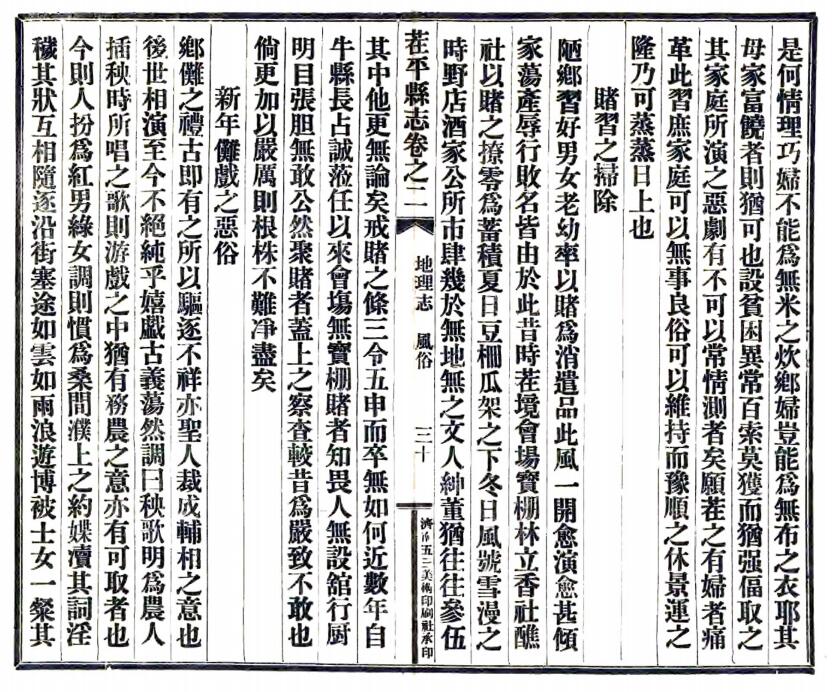 是何情理巧婦不能爲無米之炊鄉婦豈能爲無布之衣耶其
母家富饒者則猶可也設貧困異常百索莫獲而猶强偪取之
其家庭所演之惡劇有不可以常情測者矣願茬之有婦者痛
革此習庶家庭可以無事良俗可以維持而豫順之休景運之
隆乃可蒸蒸日上也
賭習之掃除
陋鄉習好男女老幼率以賭爲消遣品此風一開愈演愈甚傾
家蕩產辱行敗名皆由於此昔時茬境會場寶棚林立香社醮
社以賭之撩零爲蓄積夏日豆棚瓜架之下冬日風號雪漫之
時野店酒家公所市肆幾於無地無之文人紳董猶往往參伍
茬平縣志卷之二
地理志
風俗
三十
濟南五三美術印刷社承印
其中他更無論矣戒賭之條三令五申而卒無如何近數年自
牛縣長占誠蒞任以來會塲無寶棚賭者知畏人無設舘行厨
明目張胆無敢公然聚賭者蓋上之察查較昔爲嚴致不敢也
倘更加以嚴厲則根株不難凈盡矣
新年儺戲之惡俗
鄉儺之禮古即有之所以驅逐不祥亦聖人裁成輔相之意也
後世相演至今不絕純乎嬉戲古義蕩然調曰秧歌明爲農人
插秧時所唱之歌則游戲之中猶有務農之意亦有可取者也
今則人扮爲紅男綠女調則慣爲桑間濮上之約媟瀆其詞淫
穢其狀互相隨逐沿街塞途如雲如雨浪遊博被士女一粲其